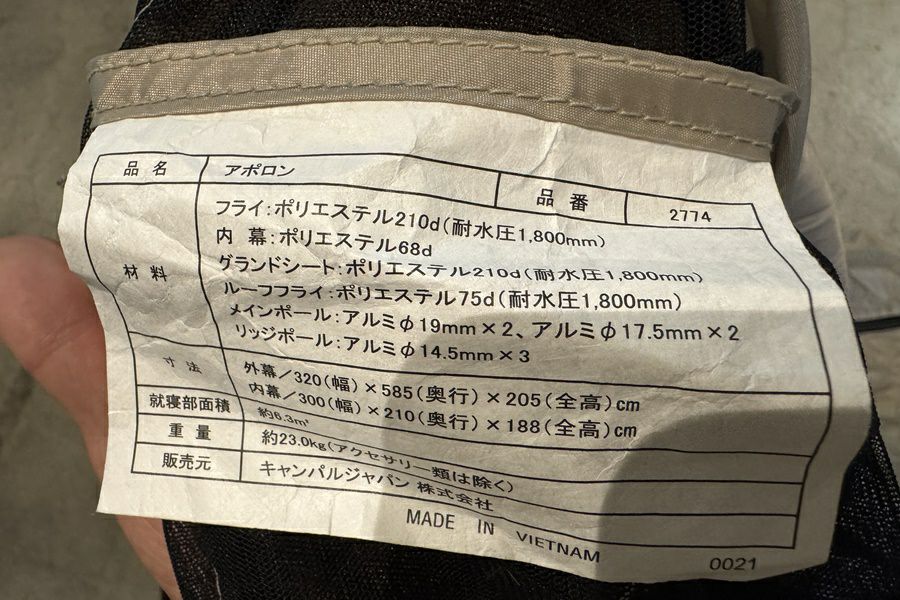 品名 アポロン 品番 2774
材料
フライ:ポリエステル210d(耐水圧1,800mm)
内 幕:ポリエステル68d
グランドシート:ポリエステル210d(耐水圧1,800mm)
ルーフフライ:ポリエステル75d(耐水圧1,800mm)
メインポール:アルミφ19mm×2、アルミφ17.5mm×2
リッジポール:アルミφ14.5mm×3
寸法
外幕/320(幅)×585(奥行)×205(全高)cm
内幕/300(幅)×210(奥行)×188(全高)cm
就寝部面積 約6.3㎡
重量 約23.0kg(アクセサリー類は除く)
販売元 キャンパルジャパン 株式会社
MADE IN VIETNAM
0021